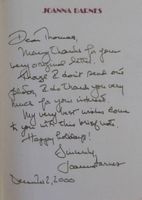 JOANNA BARNES
Dear Thomas,
Many thanks for your
very original letter.
Though I don't send out
photos, I do thank you very
much for your interest.
My very best wishes come
to you with this brief note
Happy Holidays!
Sincerely,
Joanna Barnes
December 2, 2000